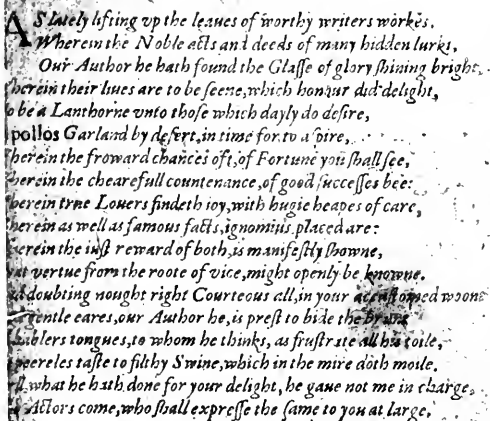 AS lately lifting vp the leaues of worthy writers workes,
Wherein the Noble acts and deeds of many hidden lurks,
Our Author he hath found the Glasse of glory shining bright,
herein their liues are to be seene, which honour did delight,
o be a Lanthorne vnto those which dayly do desire,
pollos Garland by desert, in time for to aspire,
herein the froward chances oft, of Fortune you shall see,
herein the chearefull countenance, of good successes bee:
herein true Louers findeth ioy, with hugie heapes of care,
herein as well as famous facts, ignomius placed are:
herein the iust reward of both, is manifestly showne,
at vertue from the roote of vice, might openly be knowne.
doubting nought right Courteous all, in your accustomed woont
gentle eares, our Author he, is prest to bide the brunt
bablers tongues, to whom he thinks, as frustrate all his toile,
peereles taste to filthy Swine, which in the mire doth moile.
what he hath done for your delight, he gaue not me in charge,
Actors come, who shall expresse the same to you at large.